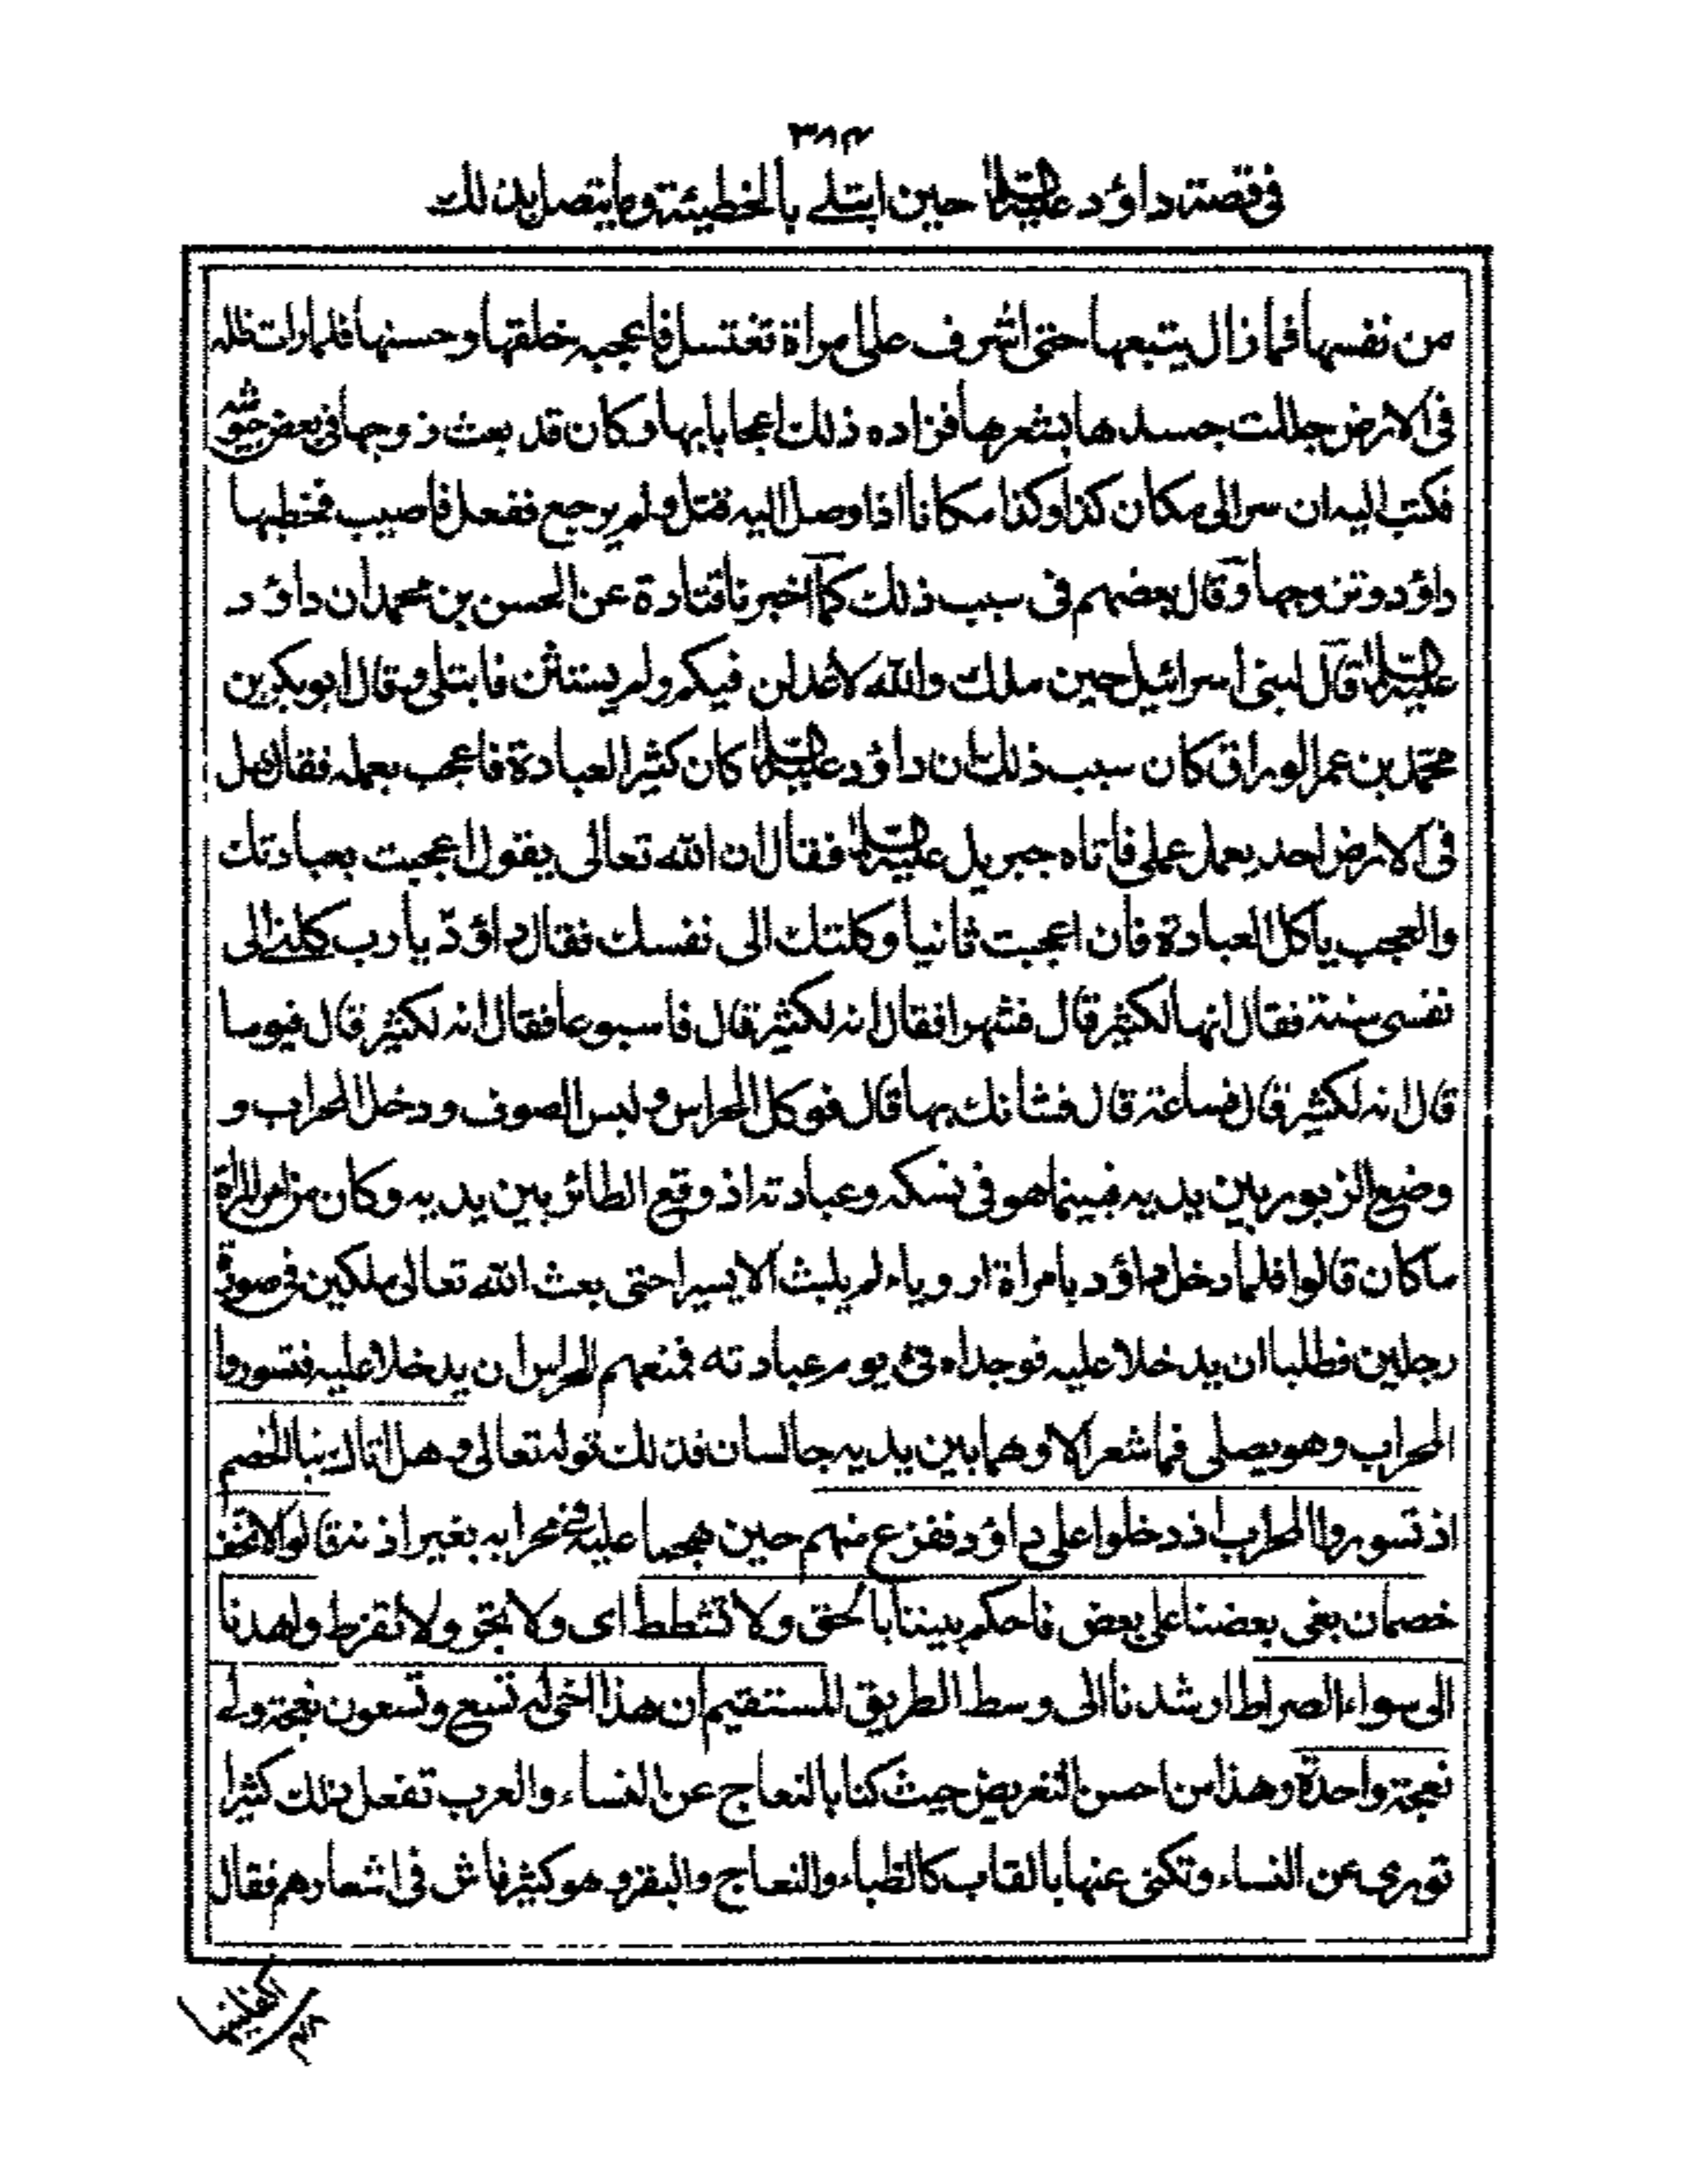 ٣٨٤
فى قصة داؤد عليه السلام حين ابتلے بالخطيئة وما يتصل بذلك
من نفسها فما زال يتبعها حتى اشرف على امراة تغتسل فاعجبه خلقها وحسنها فلما رات ظله
فى الارض جللت جسدها بشعرها فزاده ذلك اعجابا بها وكان قد بعث زوجها فى بعض جيوشه
فكتب اليه ان سر الى مكان كذا وكذا مكانا اذا وصل اليه قتل ولم يرجع ففعل فاصيب فخطبها
داؤد وتزوجها وقال بعضهم فى سبب ذلك كما اخبرنا قتادة عن الحسن بن محمد ان داؤد
عليه السلام قال لبنى اسرائيل حين ملك والله لاعدلن فيكم ولم يستثن فابتلى وقال ابو بكر بن
محمد بن عمر الوراق كان سبب ذلك ان داؤد عليه السلام كان كثير العبادة فاعجب بعمله فقال هل
فى الارض احد يعمل عملى فاتاه جبريل عليه السلام فقال ان الله تعالى يقول اعجبت بعبادتك
والعجب ياكل العبادة فان اعجبت ثانيا وكلتك الى نفسك فقال داؤد يا رب كلنے الى
نفسى سنة فقال انها لكثير قال فشهرا فقال انه لكثير قال فاسبوعا فقال انه لكثير قال فيوما
قال انه لكثير قال فساعة قال فشانك بها قال فوكل الحراس ولبس الصوف ودخل المحراب و
وضع الزبور بين يديه فبينما هو فى نسكه وعبادته اذ وقع الطائر بين يديه وكان من امر المراة
ما كان قالوا فلما دخل داؤد بامراة اروياء لم يلبث الا يسيرا حتى بعث الله تعالى ملكين فى صورة
رجلين فطلبا ان يدخلا عليه فوجداه فى يوم عبادته فمنعهم الحراس ان يدخلا عليه فتسوروا
المحراب وهو يصلى فما شعر الا وهما بين يديه جالسان فذلك قوله تعالى وهل اتاك نبا الخصم
اذ تسوروا المحراب اذ دخلوا على داؤد ففزع منهم حين هجما عليه فى محرابه بغير اذنه قالوا لا تخف
خصمان بغى بعضنا على بعض فاحكم بيننا بالحق ولا تشطط اى ولا تجر ولا تفرط واهدنا
الى سواء الصراط ارشدنا الى وسط الطريق المستقيم ان هذا اخى له تسع وتسعون نعجة ولے
نعجة واحدة وهذا من احسن التعريض حيث كنا بالنعاج عن النساء والعرب تفعل ذلك كثيرا
تورى عن النساء وتكنى عنها بالقاب كالظباء والنعاج والبقر وهو كثير فاش فى اشعارهم فقال